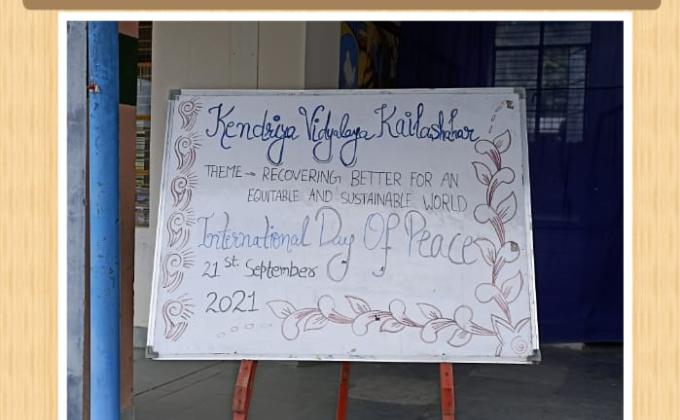 Kendriya Vidyalaya Kailashahar
THEME → RECOVERING BETTER FOR AN
EQUITABLE AND SUSTAINABLE WORLD
International Day Of Peace
21st. September
2021